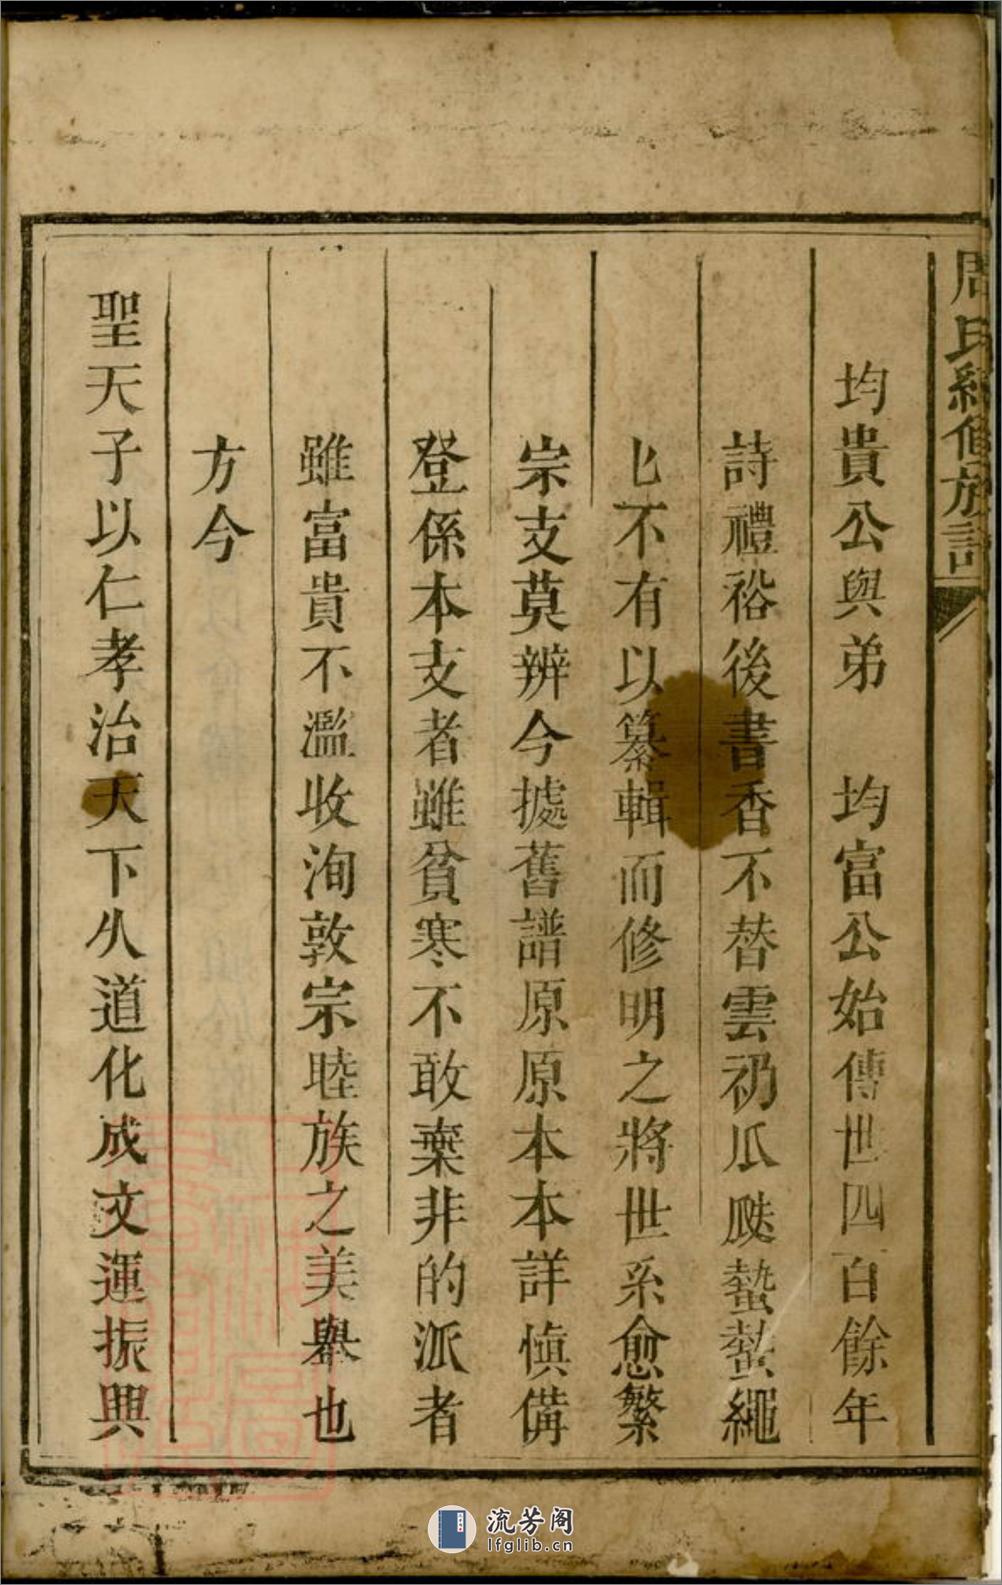 周氏續修族譜
均貴公與弟 均富公始傳世四百餘年
詩禮裕後書香不替雲礽瓜瓞蟄蟄繩
匕不有以纂輯而修明之將世系愈繁
宗支莫辨今據舊譜原原本本詳慎備
登係本支者雖貧寒不敢棄非的派者
雖富貴不濫收洵敦宗睦族之美舉也
方今
聖天子以仁孝治天下久道化成文運振興
流芳阁
lfglib.cn